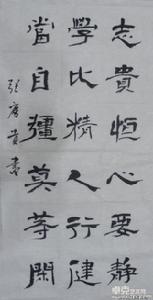 志貴恒心要靜
學比精人行健
當自彊莫等閑